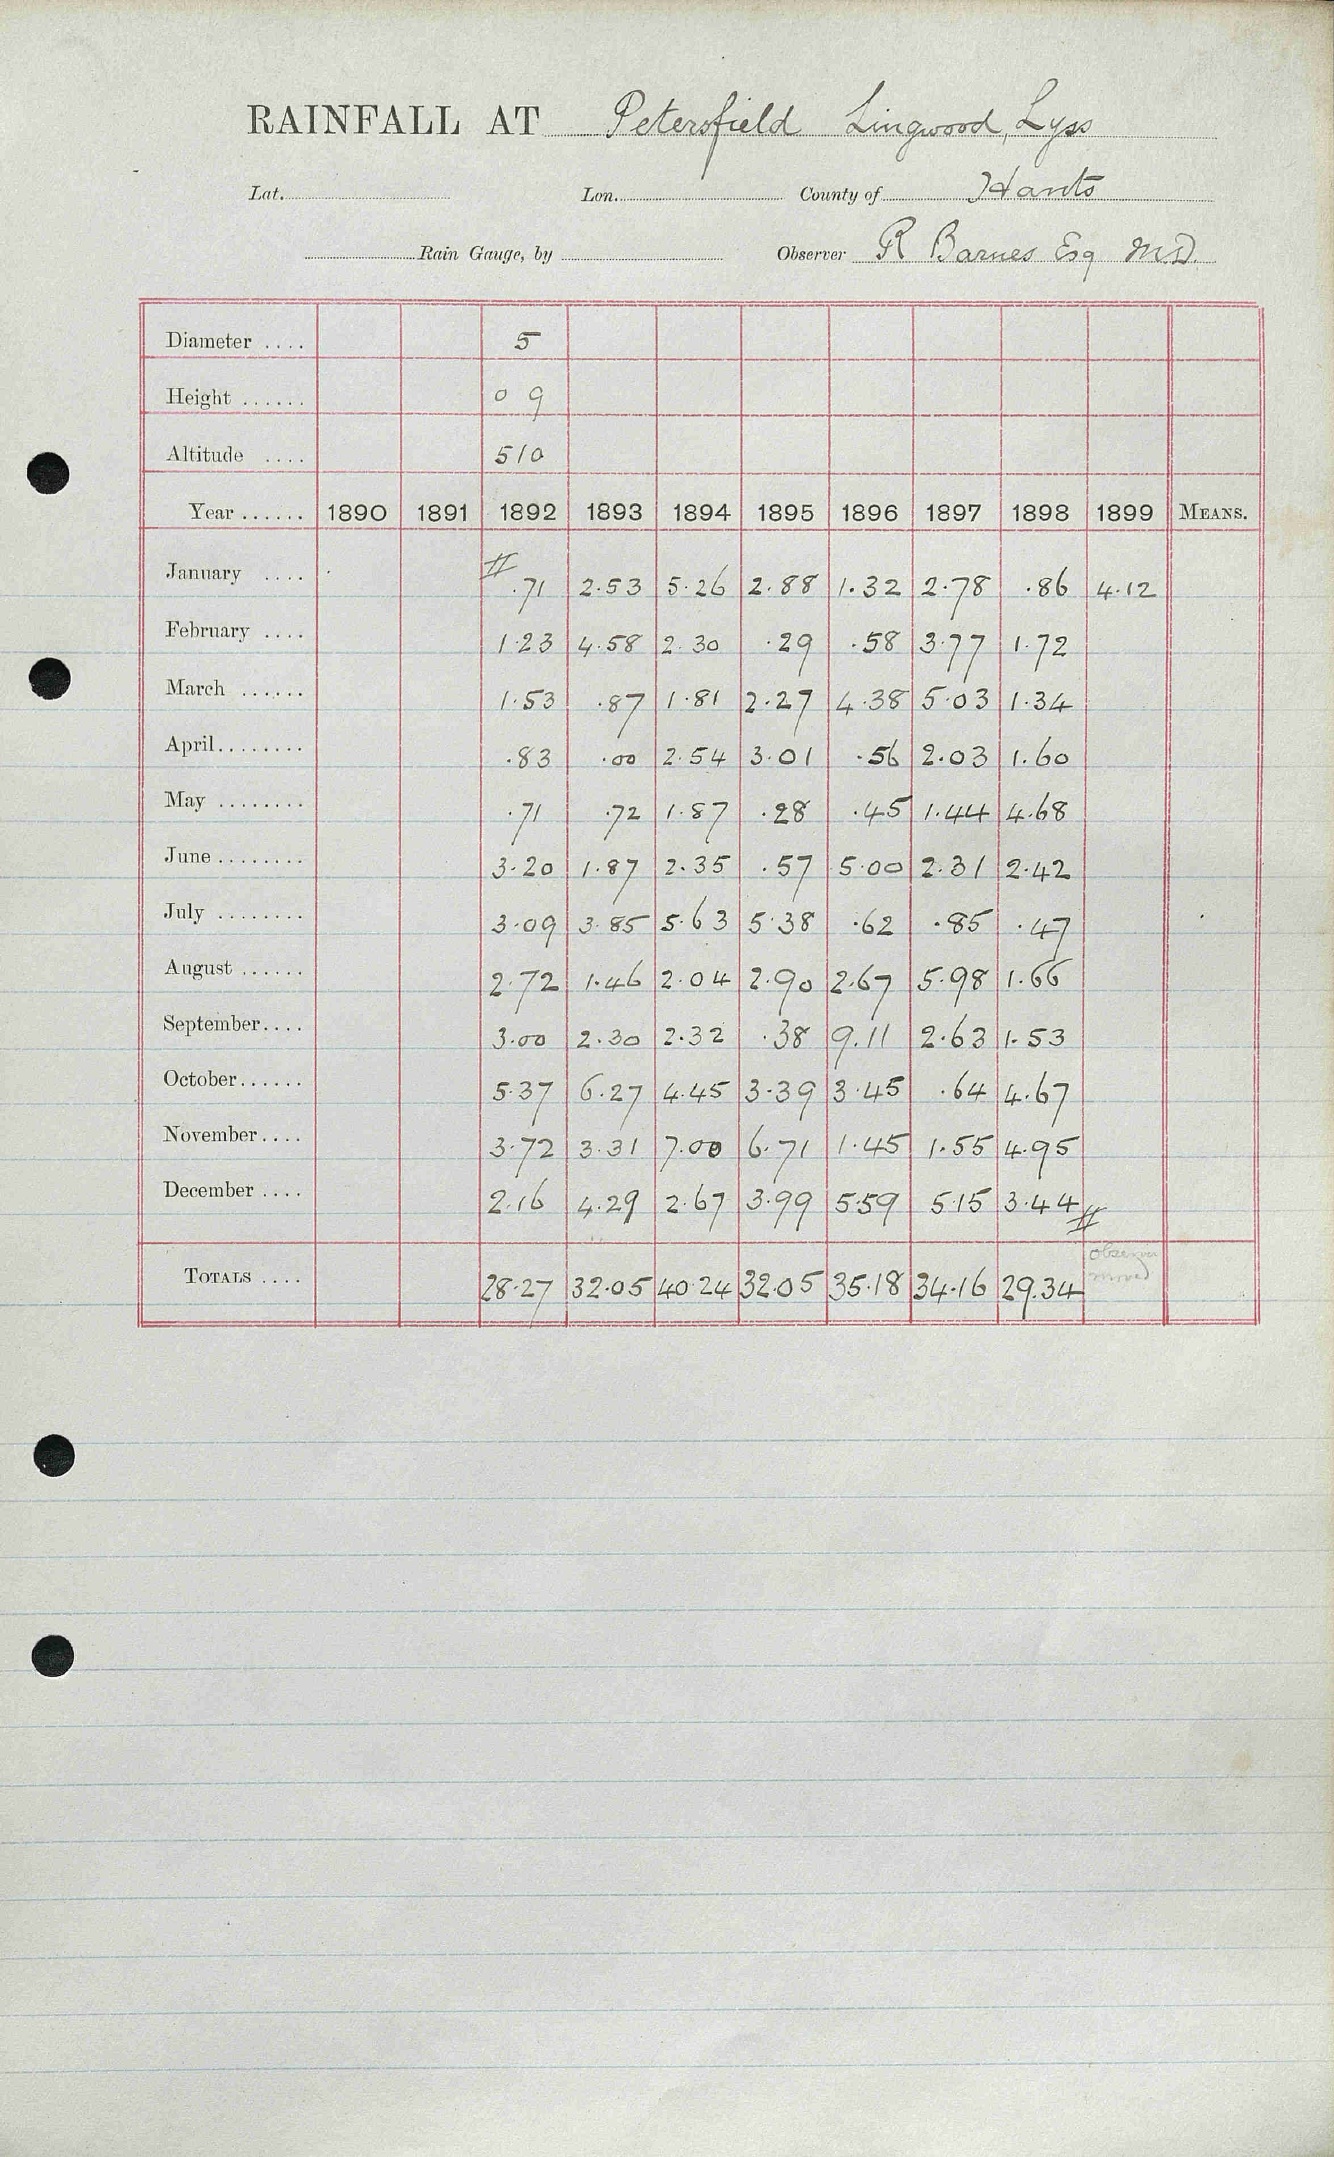 RAINFALL AT Petersfield Lingwood, Lyss
Lat. Lon. County of Hants
Rain Gauge, by Observer R Barnes Esq M.D.
Diameter .... 5
Height ...... 0 9
Altitude .... 510
Year ...... 1890 1891 1892 1893 1894 1895 1896 1897 1898 1899 MEANS.
January .... # .71 2.53 5.26 2.88 1.32 2.78 .86 4.12
February .... 1.23 4.58 2.30 .29 .58 3.77 1.72
March ...... 1.53 .87 1.81 2.27 4.38 5.03 1.34
April........ .83 .00 2.54 3.01 .56 2.03 1.60
May ........ .71 .72 1.87 .28 .45 1.44 4.68
June ........ 3.20 1.87 2.35 .57 5.00 2.31 2.42
July ........ 3.09 3.85 5.63 5.38 .62 .85 .47
August ...... 2.72 1.46 2.04 2.90 2.67 5.98 1.66
September.... 3.00 2.30 2.32 .38 9.11 2.63 1.53
October...... 5.37 6.27 4.45 3.39 3.45 .64 4.67
November.... 3.72 3.31 7.00 6.71 1.45 1.55 4.95
December .... 2.16 4.29 2.67 3.99 5.59 5.15 3.44 #
observer
moved
TOTALS .... 28.27 32.05 40.24 32.05 35.18 34.16 29.34